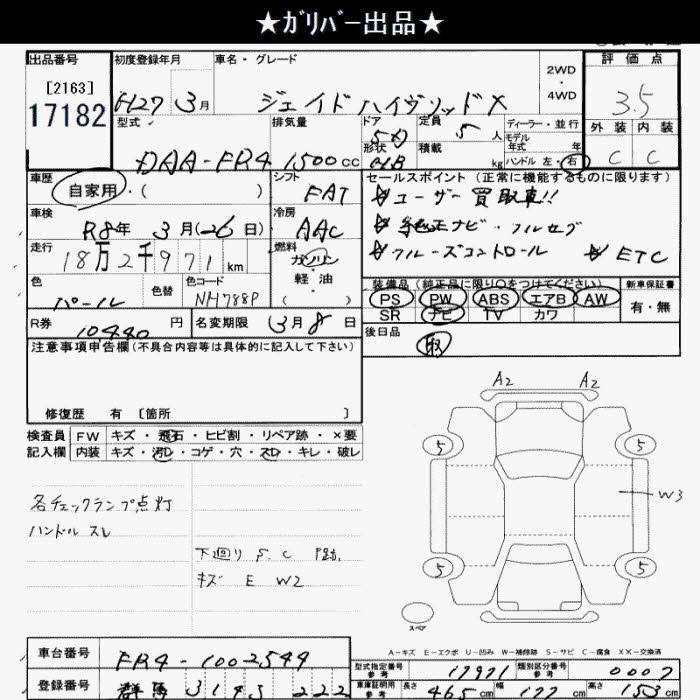 ★ｶﾞﾘﾊﾞｰ出品★
出品番号 初度登録年月 車名・グレード 2WD・4WD 評価点
[2163]
17182
H27 3月 ジェイド ハイブリッドX 3.5
型式 排気量 ドア 形状 定員 5人 積載 kg ディーラー・並行 モデル年式 年 ハンドル 左・右 外装 内装
DAA-FR4 1500cc C C
車歴 シフト セールスポイント (正常に機能するものに限ります)
自家用・( ) FAT ユーザー買取車!!
車検 冷房 純正ナビ・フルセグ
R8年 3月(26日) AAC
走行 燃料 クルーズコントロール ETC
18万2千971km ガソリン
軽・油
( )
色 色替 色コード 装備品 (純正品に限り○をつけてください) 新車保証書
パール NH788P PS PW ABS エアB AW 有・無
SR ナビ TV カワ
R券 10440円 名変期限 3月8日 後日品
取
注意事項申告欄(不具合内容等は具体的に記入して下さい)
修復歴 有 〔箇所 〕
A2 A2
検査員 FW キズ・飛石・ヒビ割・リペア跡・×要
記入欄 内装 キズ・汚れ・コゲ・穴・スレ・キレ・破レ
5 5
W3
各チェックランプ点灯
ハンドル スレ
下廻り S.C
キズ E W2
5 5
スペア
A-キズ E-エクボ U-凹み W-補修跡 S-サビ C-腐食 XX-交換済
車台番号 FR4-1002544
型式指定番号 参考 17971 類別区分番号 参考 0007
登録番号 群馬 222
車庫証明用 参考 長さ 465cm 幅 177cm 高さ 153cm